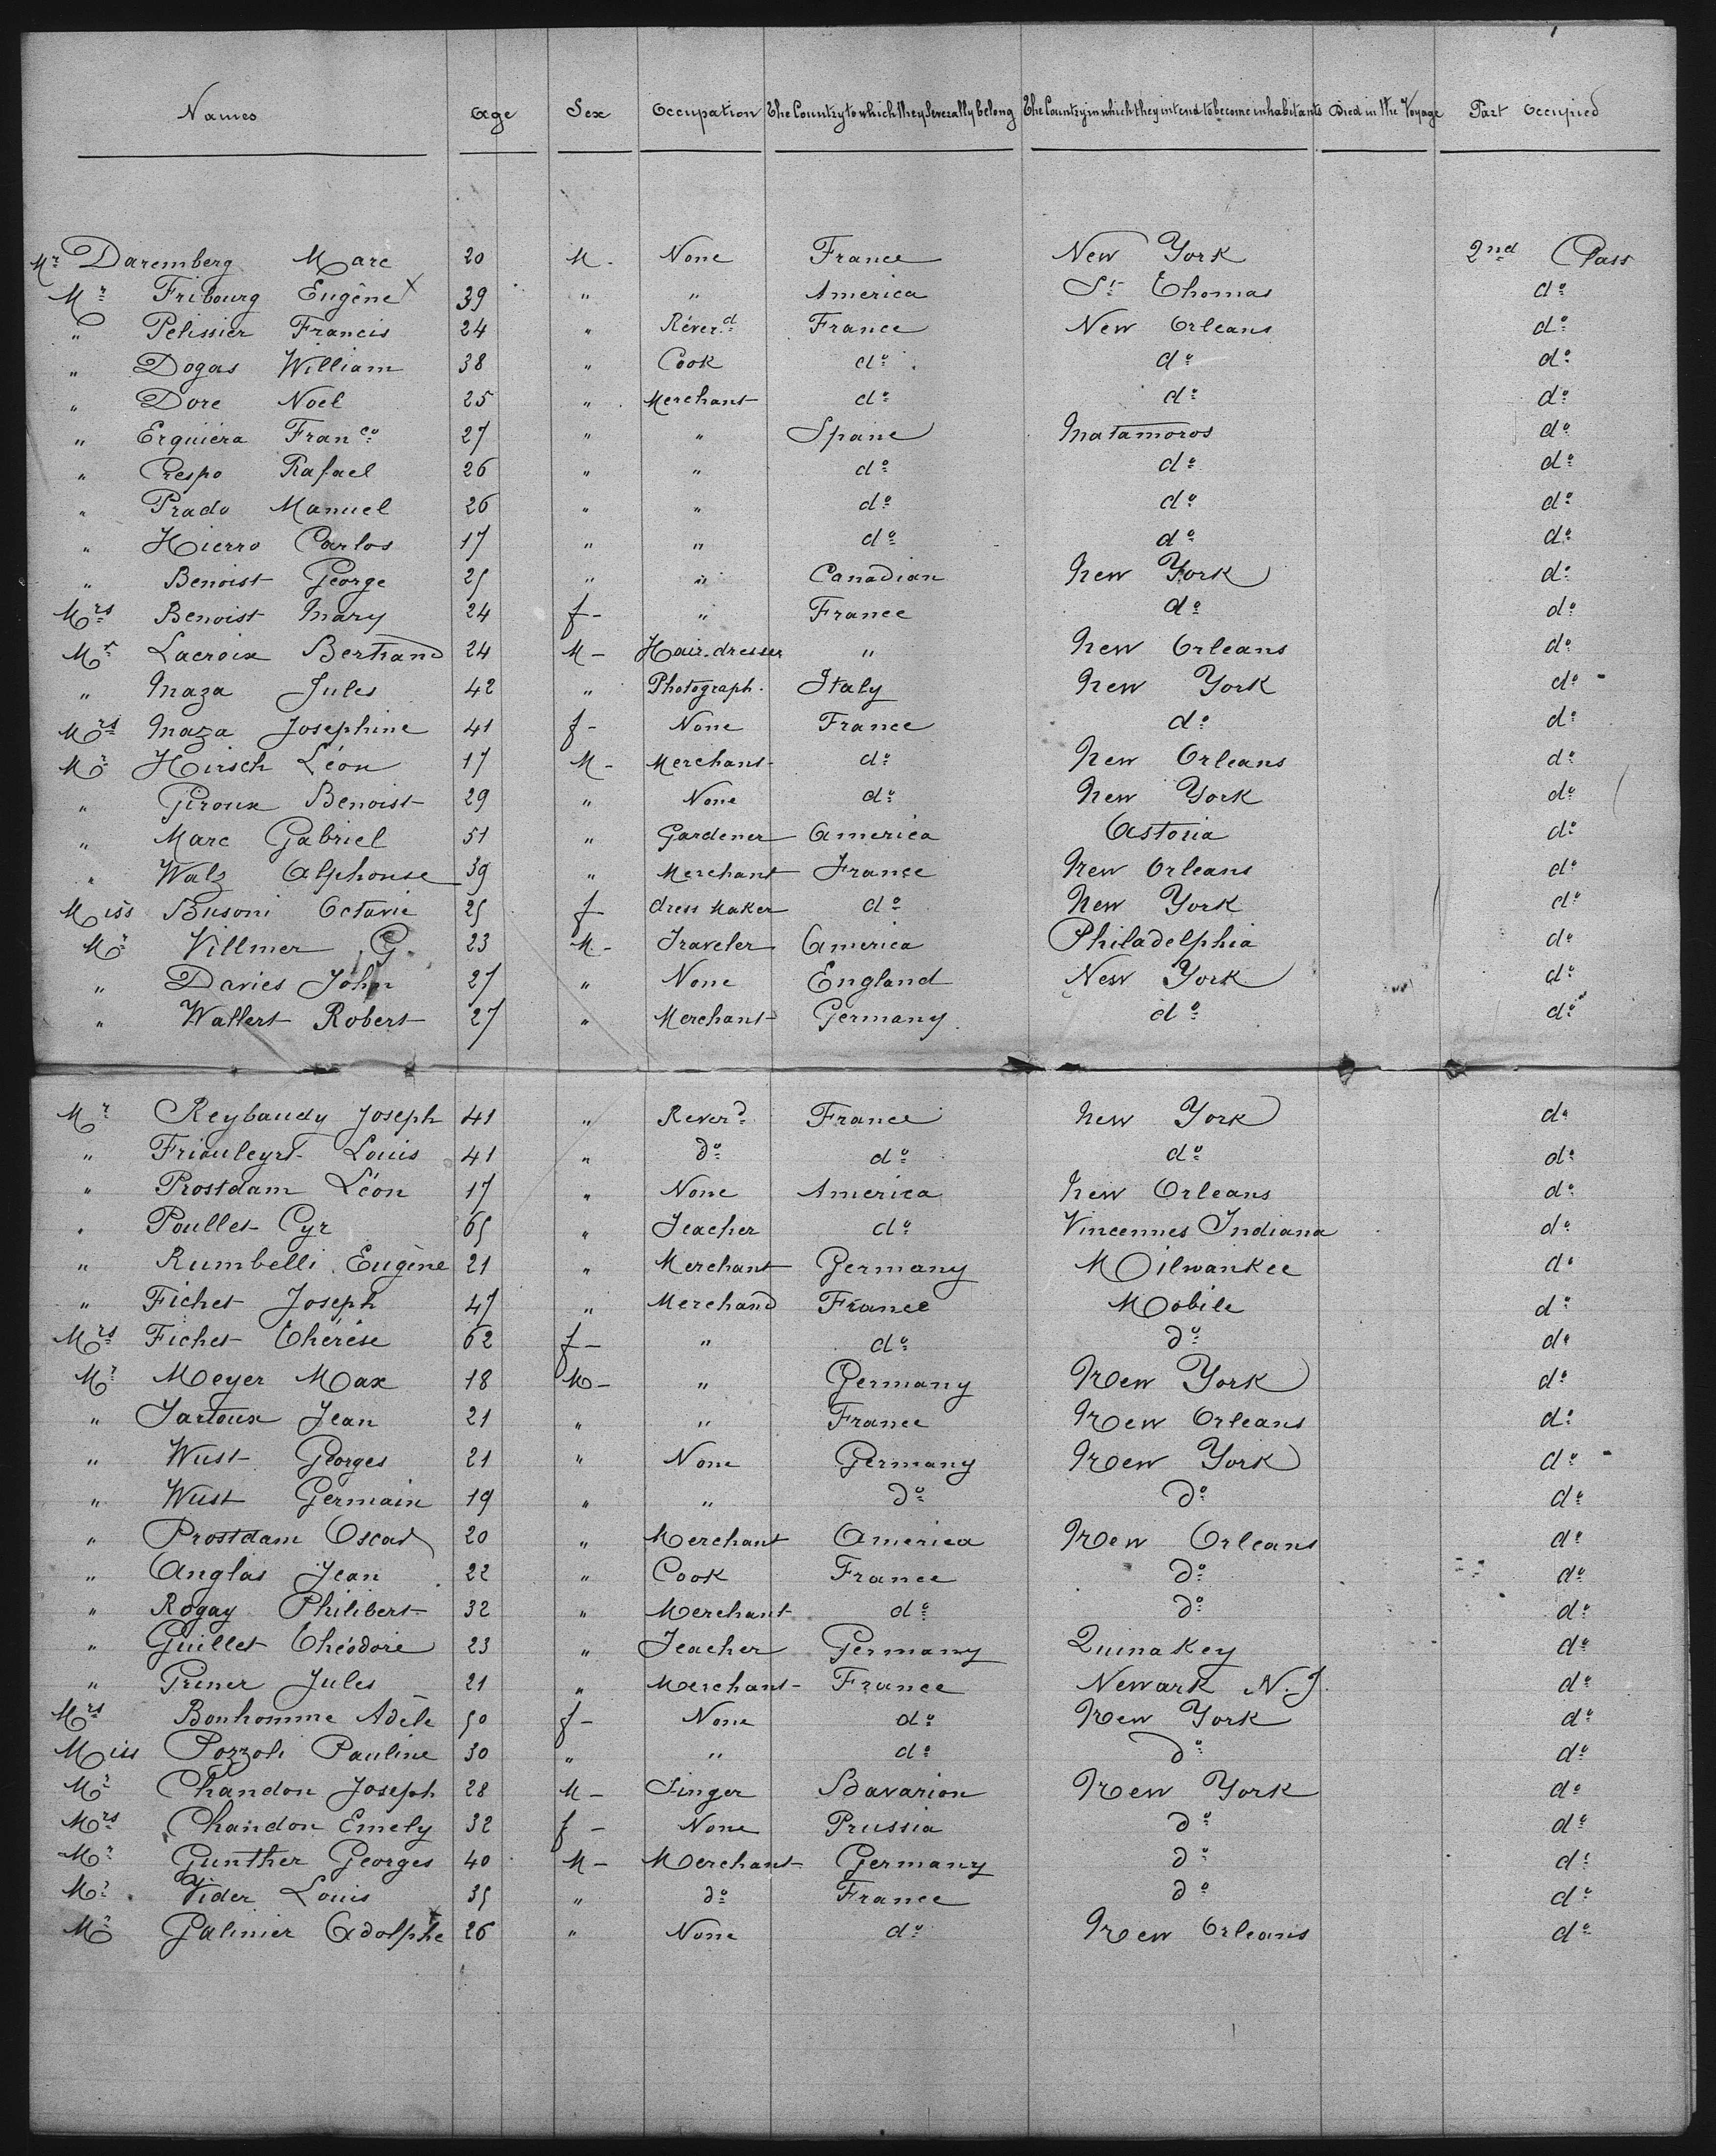 Names Age Sex Occupation The Country to which they Severally belong The Country in which they intend to become inhabitants Died in the Voyage Part Occupied
Mr Daremberg Marc 20 M. None France New York 2nd Class
Mr Fribourg Eugène x 39 " " America St Thomas do
" Pelissier Francis 24 " Réverd France New Orleans do
" Dogas William 38 " Cook do do do
" Dore Noel 25 " Merchant do do do
" Erquiera Franco 27 " " Spain Matamoros do
" Crespo Rafael 26 " " do do do
" Prado Manuel 26 " " do do do
" Hierro Carlos 17 " " do do do
" Benoist George 25 " " Canadian New York do
Mrs Benoist Mary 24 f- " France do do
Mr Lacroix Bertrand 24 M- Hair-dresser " New Orleans do
" Maza Jules 42 " Photograph. Italy New York do
Mrs Maza Josephine 41 f- None France do do
Mr Hirsch Léon 17 M- Merchant do New Orleans do
" Giroux Benoist 29 " None do New York do
" Marc Gabriel 51 " Gardener America Astoria do
" Walz Alphonse 39 " Merchant France New Orleans do
Miss Busoni Octavie 25 f- dress Maker do New York do
Mr Villmer G. 23 M- Traveler America Philadelphia do
" Davies John 27 " None England New York do
" Wallert Robert 27 " Merchant Germany do do
Mr Reybaudy Joseph 41 " Reverd France New York do
" Friouleyrt Louis 41 " do do do do
" Prostdam Léon 17 " None America New Orleans do
" Poullet Cyr 65 " Teacher do Vincennes Indiana do
" Rumbelli Eugène 21 " Merchant Germany Milwankee do
" Fichet Joseph 47 " Merchand France Mobile do
Mrs Fichet Thérèse 62 f- " do do do
Mr Meyer Max 18 M- " Germany New York do
" Jartoux Jean 21 " " France New Orleans do
" Wust Georges 21 " None Germany New York do
" Wust Germain 19 " " do do do
" Prostdam Oscar 20 " Merchant America New Orleans do
" Anglas Jean 22 " Cook France do do
" Rogay Philibert 32 " Merchant do do do
" Guillet Théodore 23 " Teacher Germany Quinakey do
" Griner Jules 21 " Merchant France Newark N.J. do
Mrs Bonhomme Adèle 50 f- None do New York do
Miss Pozzoli Pauline 30 " " do do do
Mr Chandon Joseph 28 M- Singer Bavarion New York do
Mrs Chandon Emely 32 f- None Prussia do do
Mr Gunther Georges 40 M- Merchant Germany do do
Mr Vider Louis 35 " do France do do
Mr Galinier Adolphe 26 " None do New Orleans do